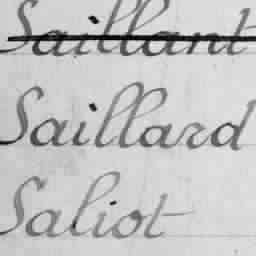 Saillant
Saillard
Saliot